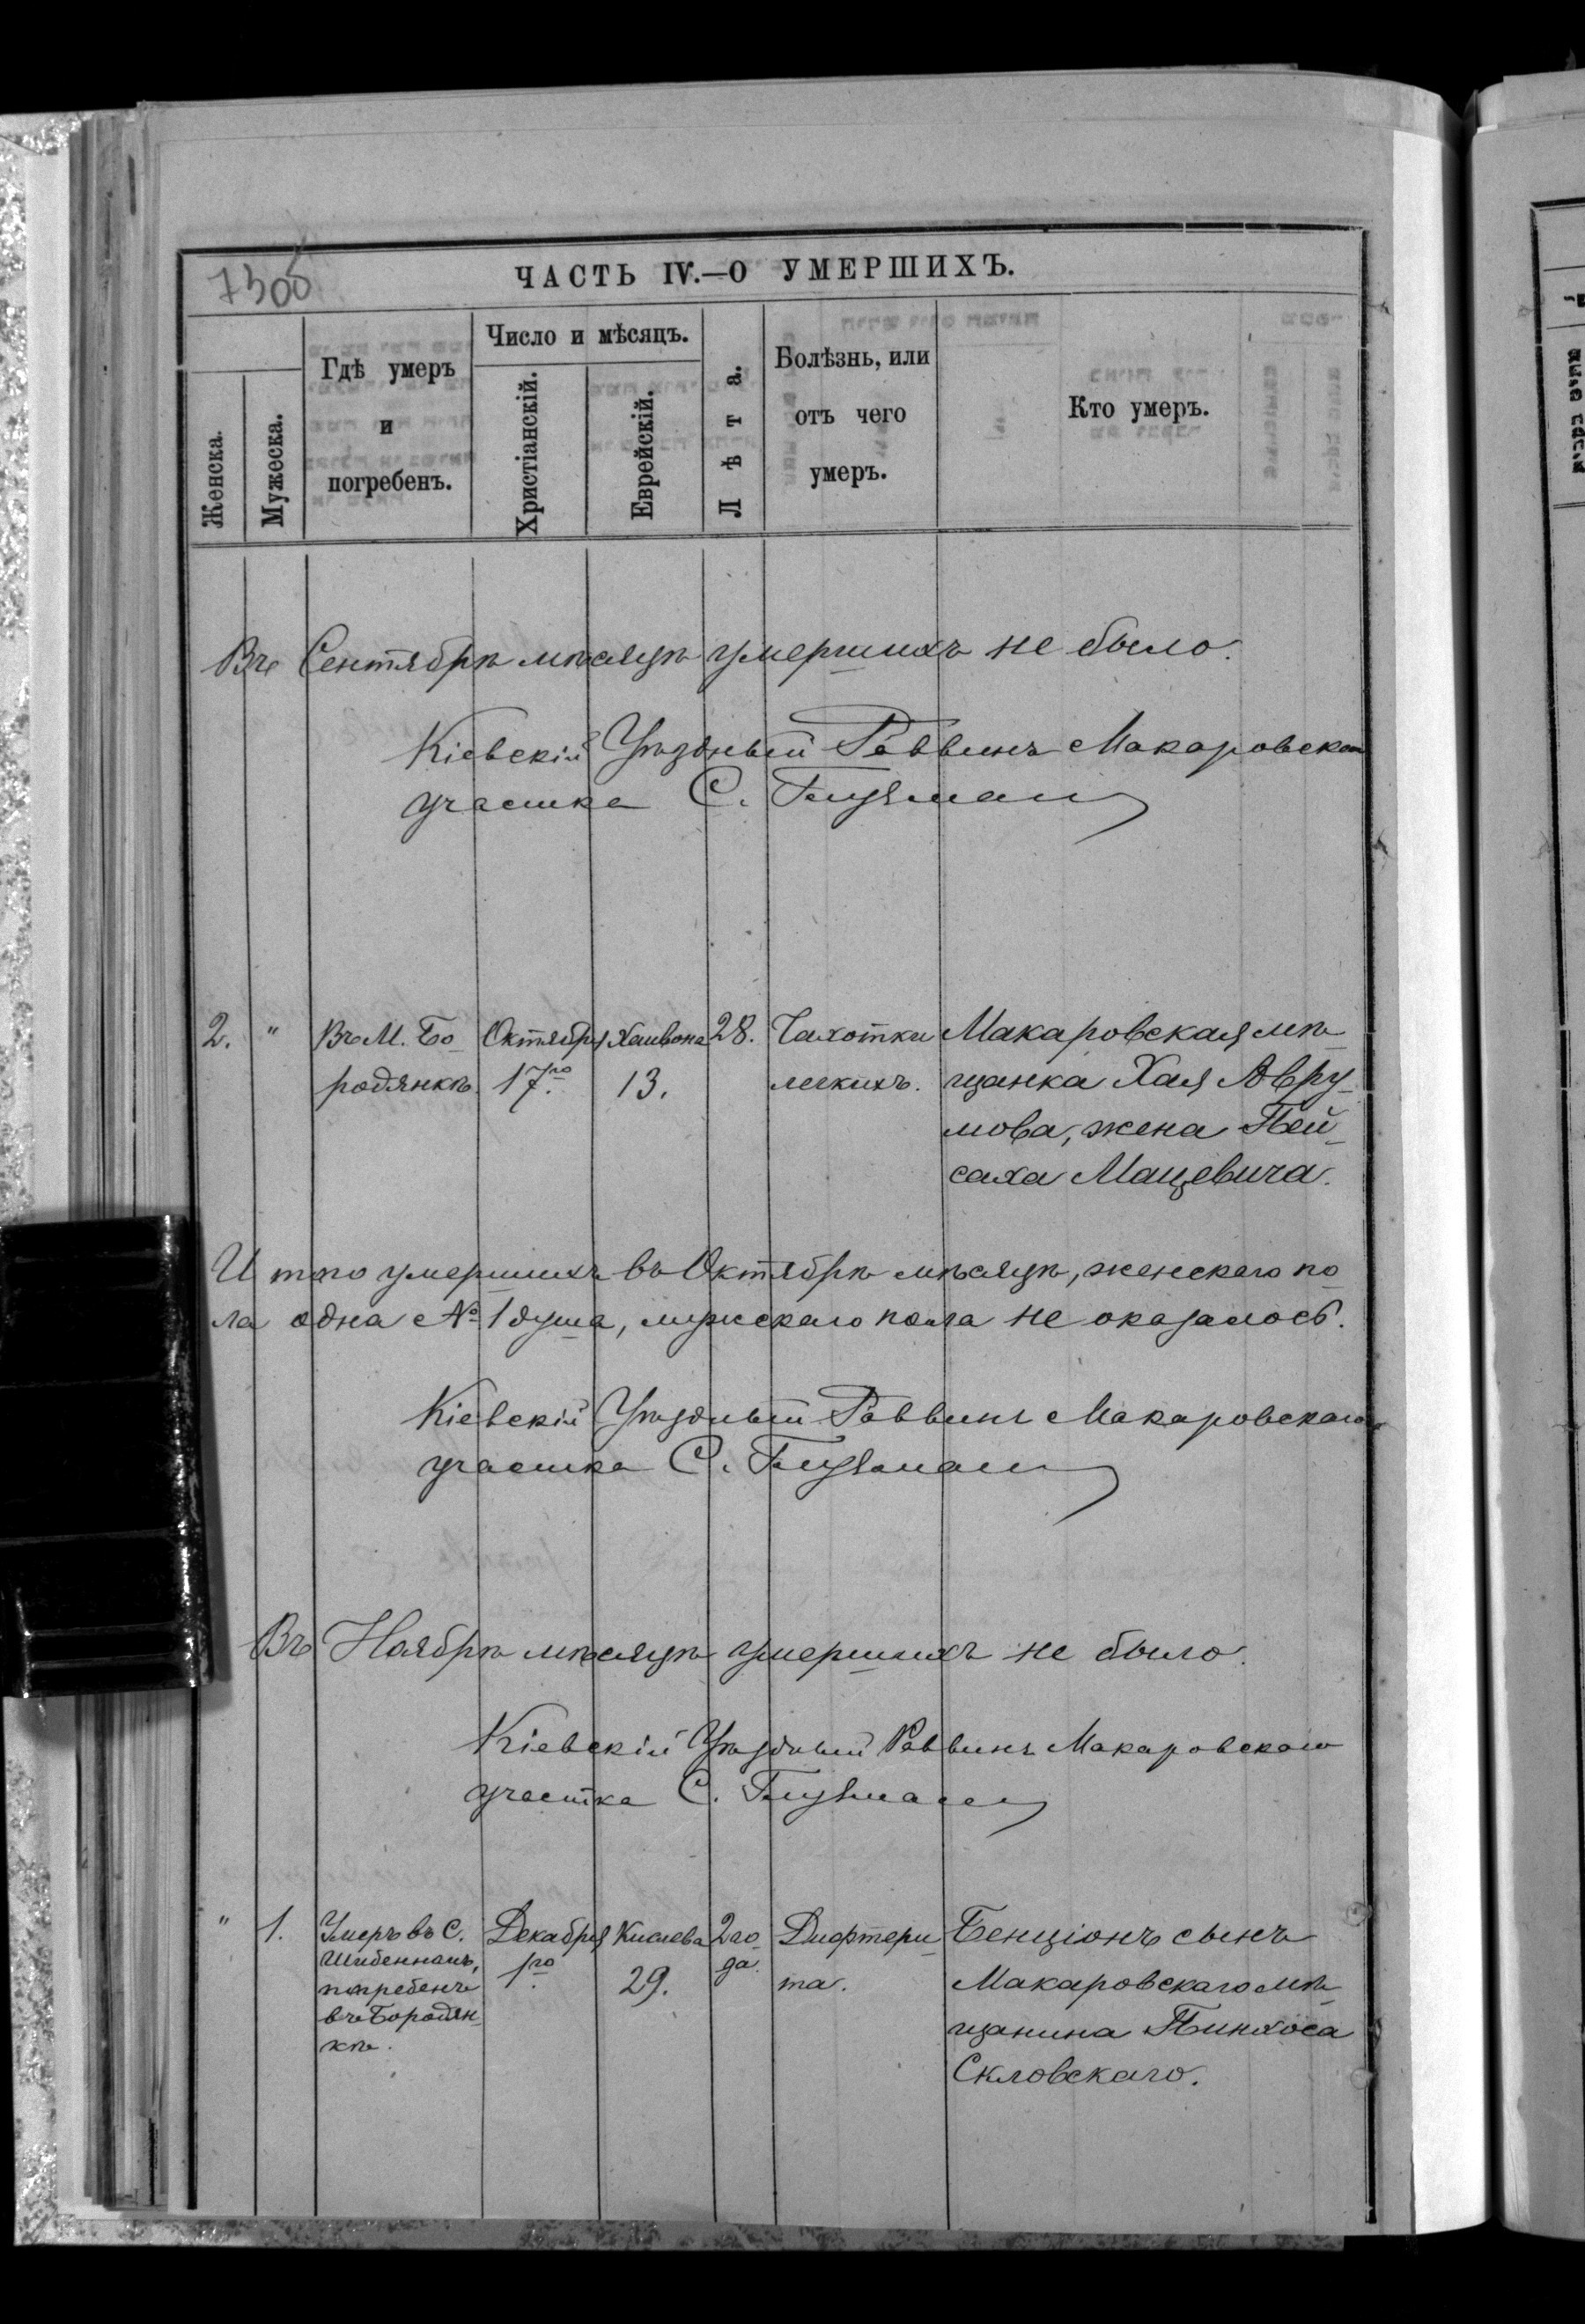 ЧАСТЬ IV.—О УМЕРШИХЪ.
Женска.
Мужеска.
Гдѣ умеръ
и
погребенъ.
Число и мѣсяцъ.
Христіанскій.
Еврейскій.
Лѣта.
Болѣзнь, или
отъ чего
умеръ.
Кто умеръ.
Въ Сентябрѣ мѣсяцѣ умершихъ не было.
Кіевскій Уѣздный Раввинъ Макаровскаго
участка С.
2. " Въ М. Бо- Октября Хешвона 28. Чахотки Макаровская мѣ-
родянкѣ. 17го. 13. легкихъ. щанка Хая Авру-
мова, жена Пей-
саха Мацевича.
Итого умершихъ въ Октябрѣ мѣсяцѣ, женскаго по-
ла одна № 1 душа, мужскаго пола не оказалось.
Кіевскій Уѣздный Раввинъ Макаровскаго
участка С.
Въ Ноябрѣ мѣсяцѣ умершихъ не было.
Кіевскій Уѣздный Раввинъ Макаровскаго
участка С.
" 1. Умеръ въ С. Декабря Кислева 2 го- Дифтери- Бенціонъ сынъ
погребенъ 1го. 29. да. та. Макаровскаго мѣ-
въ Бородян- щанина Пинхоса
кѣ. Скловскаго.